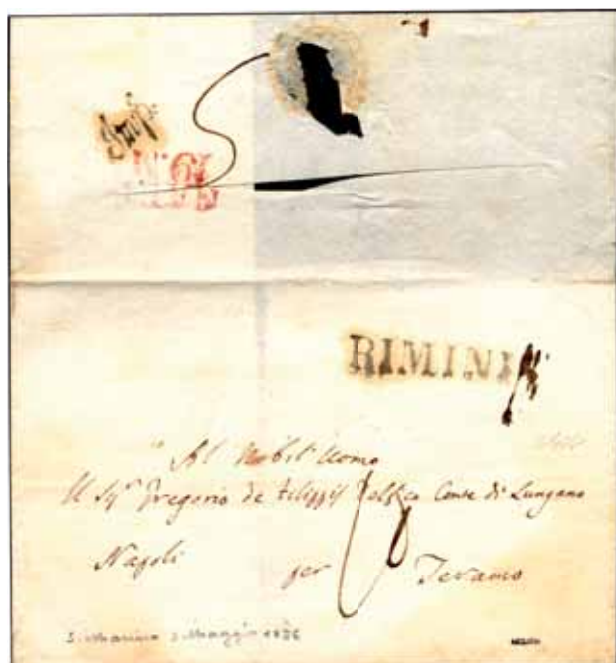 Imp.
RIMINI
Al Nobil Uomo
Il Sig.r Gregorio de Filippis Delfico Conte di Lungano
Napoli per Teramo
S. Marino 3 Maggio 1826